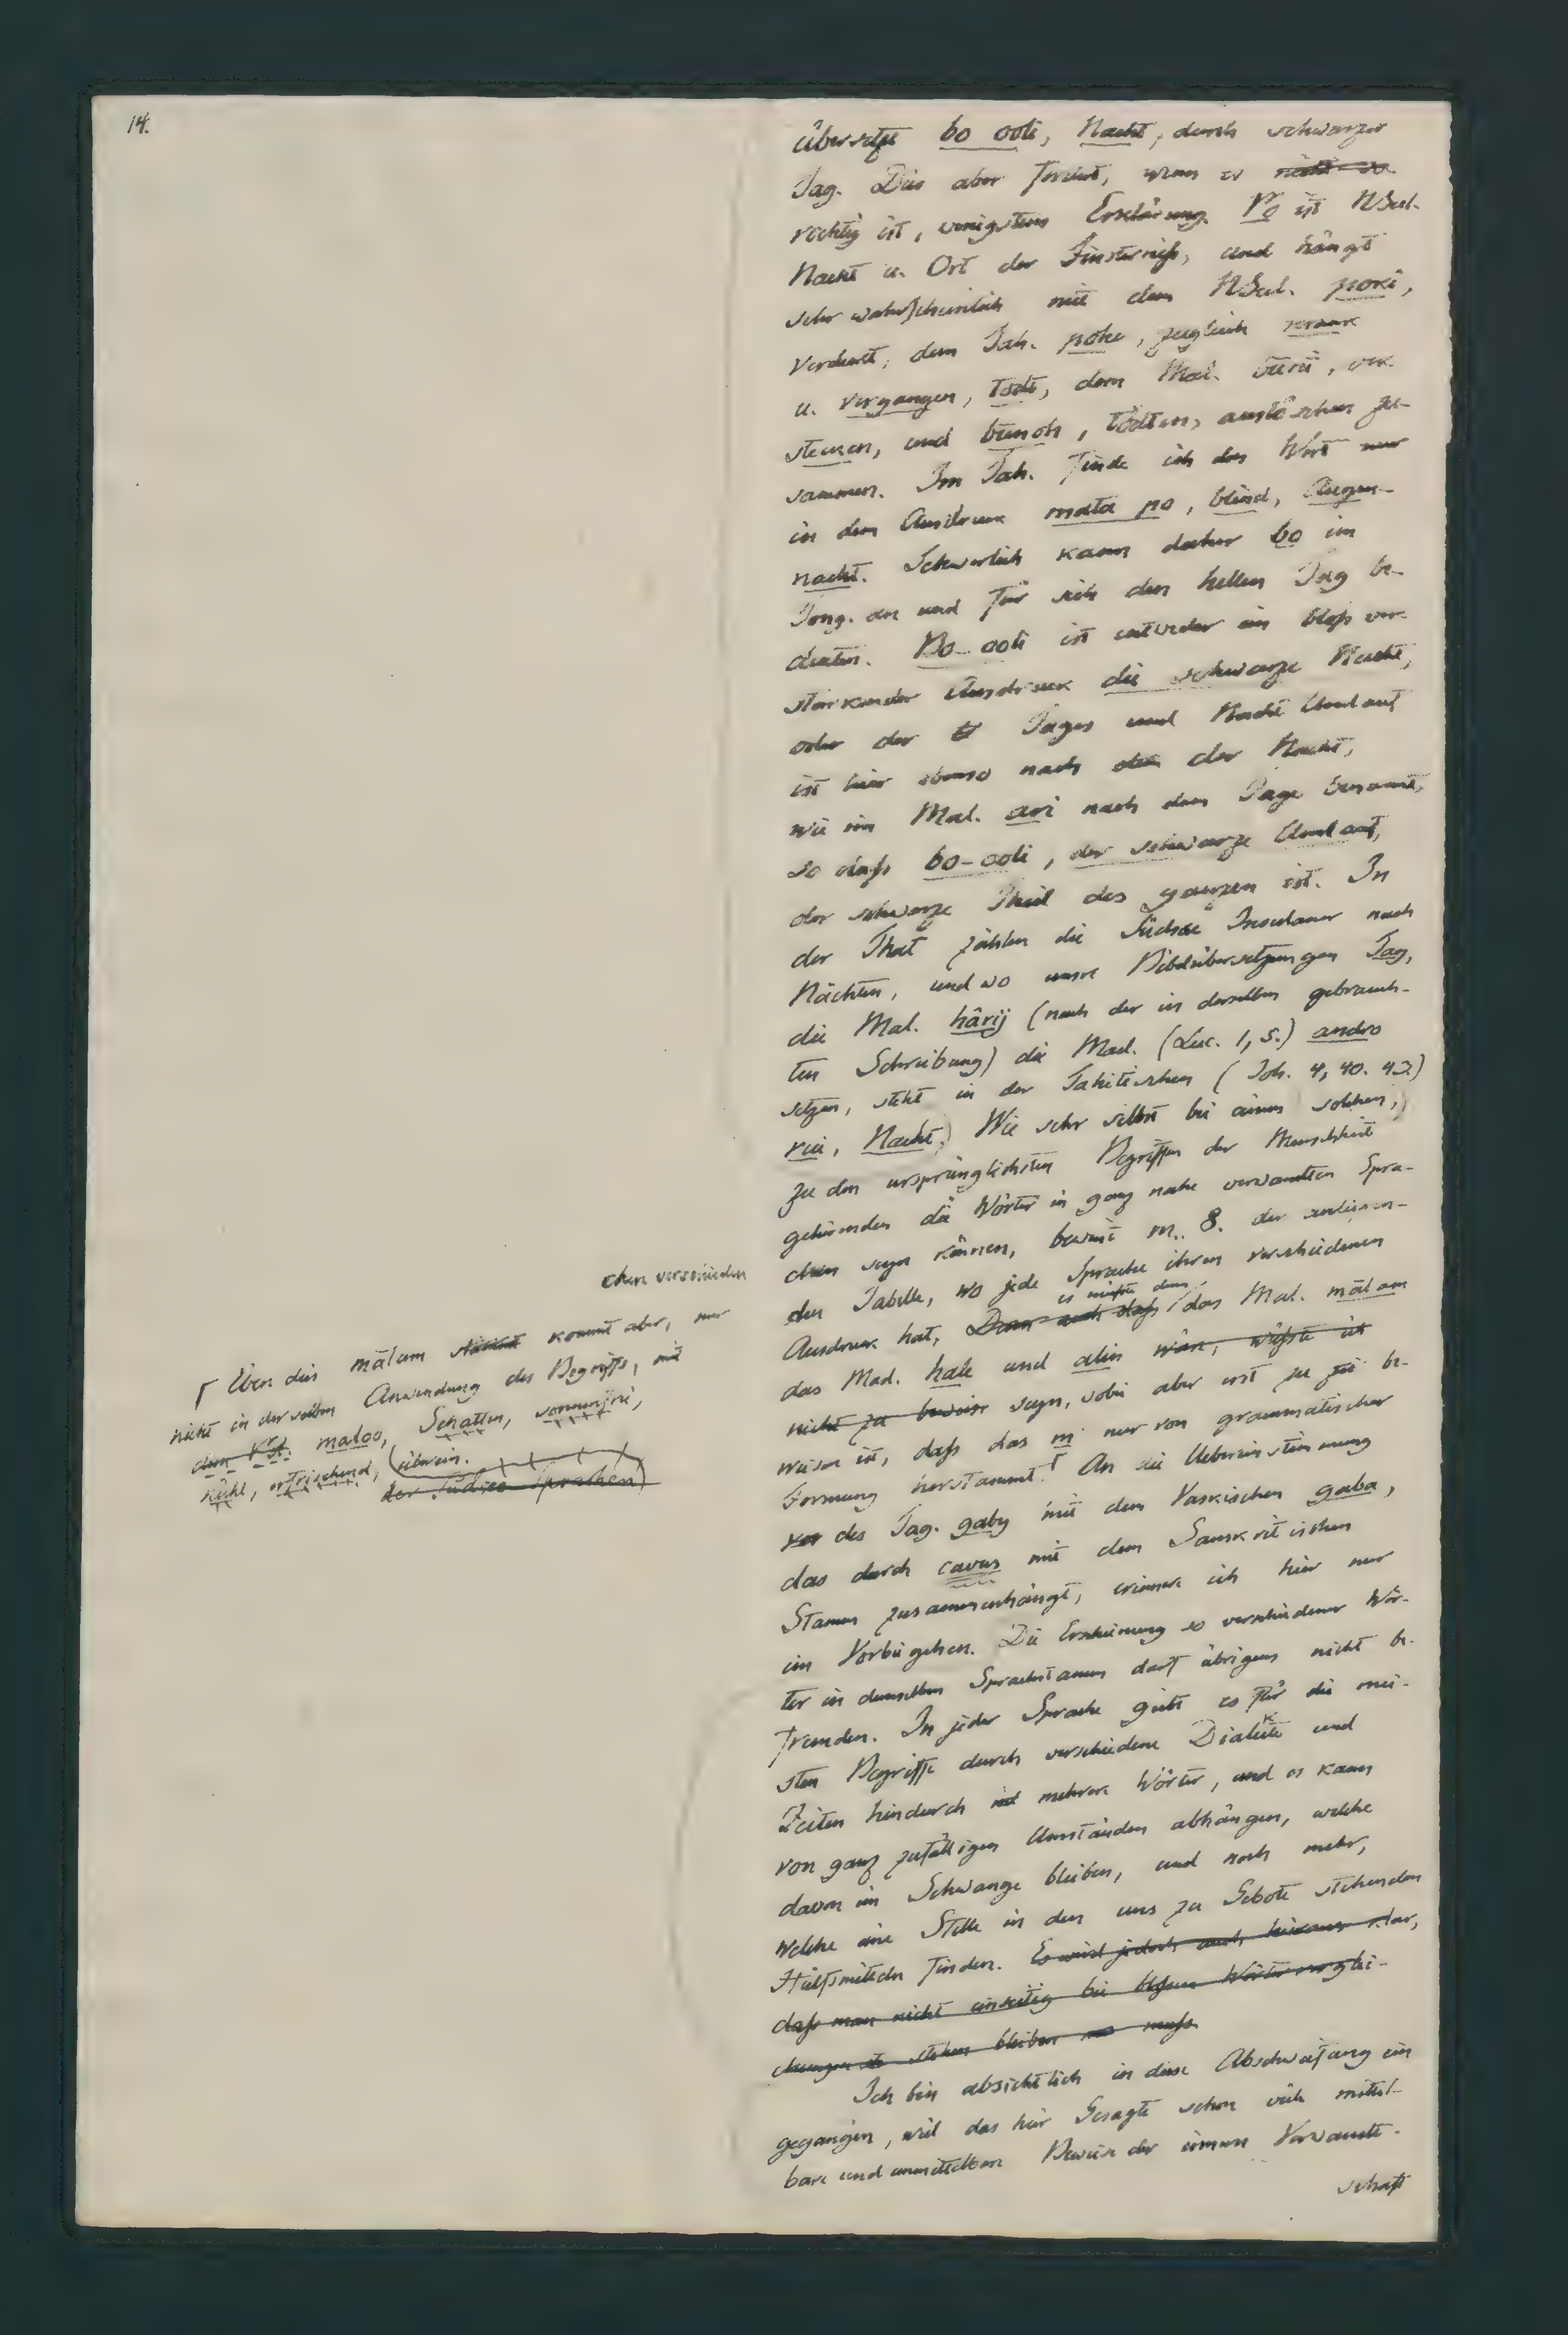 14.
übersetzt bo ooli, Nacht, durch schwarzer
Tag. Dies aber fordert, wenn es nicht
richtig ist, wenigstens Erklärung. Po ist NSeel.
Nacht u. Ort der Finsterniß, und hängt
sehr wahrscheinlich mit dem NSeel. pori,
verdirbt, dem Tah. pohe, zugleich
u. vergangen, todt, dem Mal. būnī, ver-
stecken, und bunoh, tödten, auslöschen zu-
sammen. Im Tah. finde ich das Wort nur
in dem Ausdruck mata po, blind, Augen-
nacht. Schwerlich kann daher bo im
Tong. an und für sich den hellen Tag be-
deuten. Bo ooli ist entweder ein bloß ver-
stärkender Ausdruck die schwarze Nacht,
oder der Tages und Nacht Umlauf
ist hier ebenso nach der Nacht,
wie im Mal. ari nach dem Tage benannt,
so daß bo-ooli, der schwarze Umlauf,
der schwarze Theil des ganzen ist. In
der That zählen die Südsee Insulaner nach
Nächten, und wo unsre Bibelübersetzungen Tag,
die Mal. hârij (nach der in derselben gebrauch-
ten Schreibung) die Mad. (Luc. 1, 5.) andro
setzen, steht in der Tahitischen (Joh. 4, 40. 43.)
rui, Nacht.) Wie sehr selbst bei einem solchen,
zu den ursprünglichsten Begriffen der Menschheit
gehörenden die Wörter in ganz nahe verwandten Spra-
chen verschieden
chen seyn können, beweist m. 8. der anliegen-
den Tabelle, wo jede Sprache ihren verschiedenen
es müßte denn
Ausdruck hat, Denn auch daß das Mal. mālam
das Mad. hale und alin wäre, wüßte ich
nicht zu beweisen seyn, wobei aber erst zu be-
weisen ist, daß das m nur von grammatischer
Formung herstammt. An die Uebereinstimmung
des Tag. gaby mit dem Vaskischen gaba,
das durch cavus mit dem Sanskritischen
Stamm zusammenhängt, erinnere ich hier nur
im Vorbeigehen. Die Erscheinung so verschiedener Wör-
ter in demselben Sprachstamm darf übrigens nicht be-
fremden. In jeder Sprache giebt es für die mei-
sten Begriffe durch verschiedene Dialekte und
Zeiten hindurch mehrere Wörter, und es kann
von ganz zufälligen Umständen abhängen, welche
davon im Schwange bleiben, und noch mehr,
welche eine Stelle in den uns zu Gebote stehenden
Hülfsmitteln finden. Es wird jedoch auch hieraus klar,
daß man nicht einseitig bei bloßen Wörterverglei-
chungen stehen bleiben muß.
Ich bin absichtlich in diese Abschweifung ein
gegangen, weil das hier Gesagte schon viele mittel-
bare und unmittelbare Beweise der innern Verwandt-
schaft
Eben dies mālam stimmt kommt aber, nur
nicht in derselben Anwendung des Begriffs, mit
dem maloo, Schatten,
kühl, erfrischend, überein.
der Südsee Sprachen)